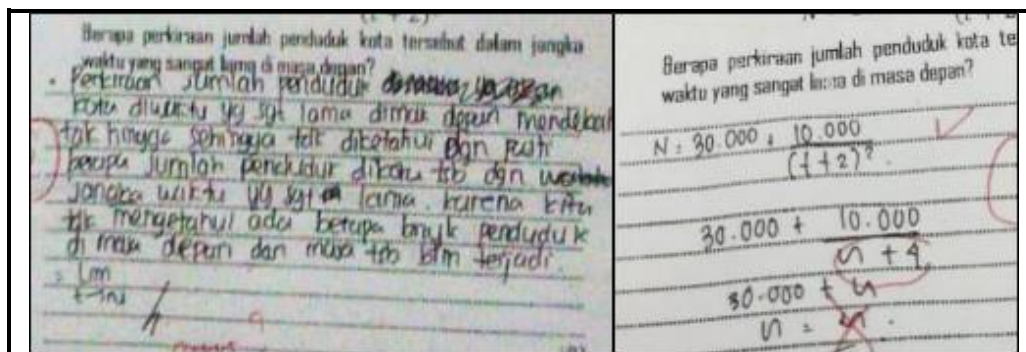 Berapa perkiraan jumlah penduduk kota tersebut dalam jangka
waktu yang sangat lama di masa depan?
. Perkiraan jumlah penduduk
kota diwaktu yg sgt lama dimasa depan mendekati
tak hingga sehingga tdk diketahui dgn pasti
berapa jumlah penduduk dikota tsb dgn
jangka waktu yg sgt lama. karena kita
tdk mengetahui ada berapa bnyk penduduk
di masa depan dan masa tsb blm terjadi.
= lim
Berapa perkiraan jumlah penduduk kota te
waktu yang sangat lama di masa depan?
N = 30.000 + 10.000
(t+2)²
30.000 + 10.000
∽ + 4
30.000 + ∽
∽ =